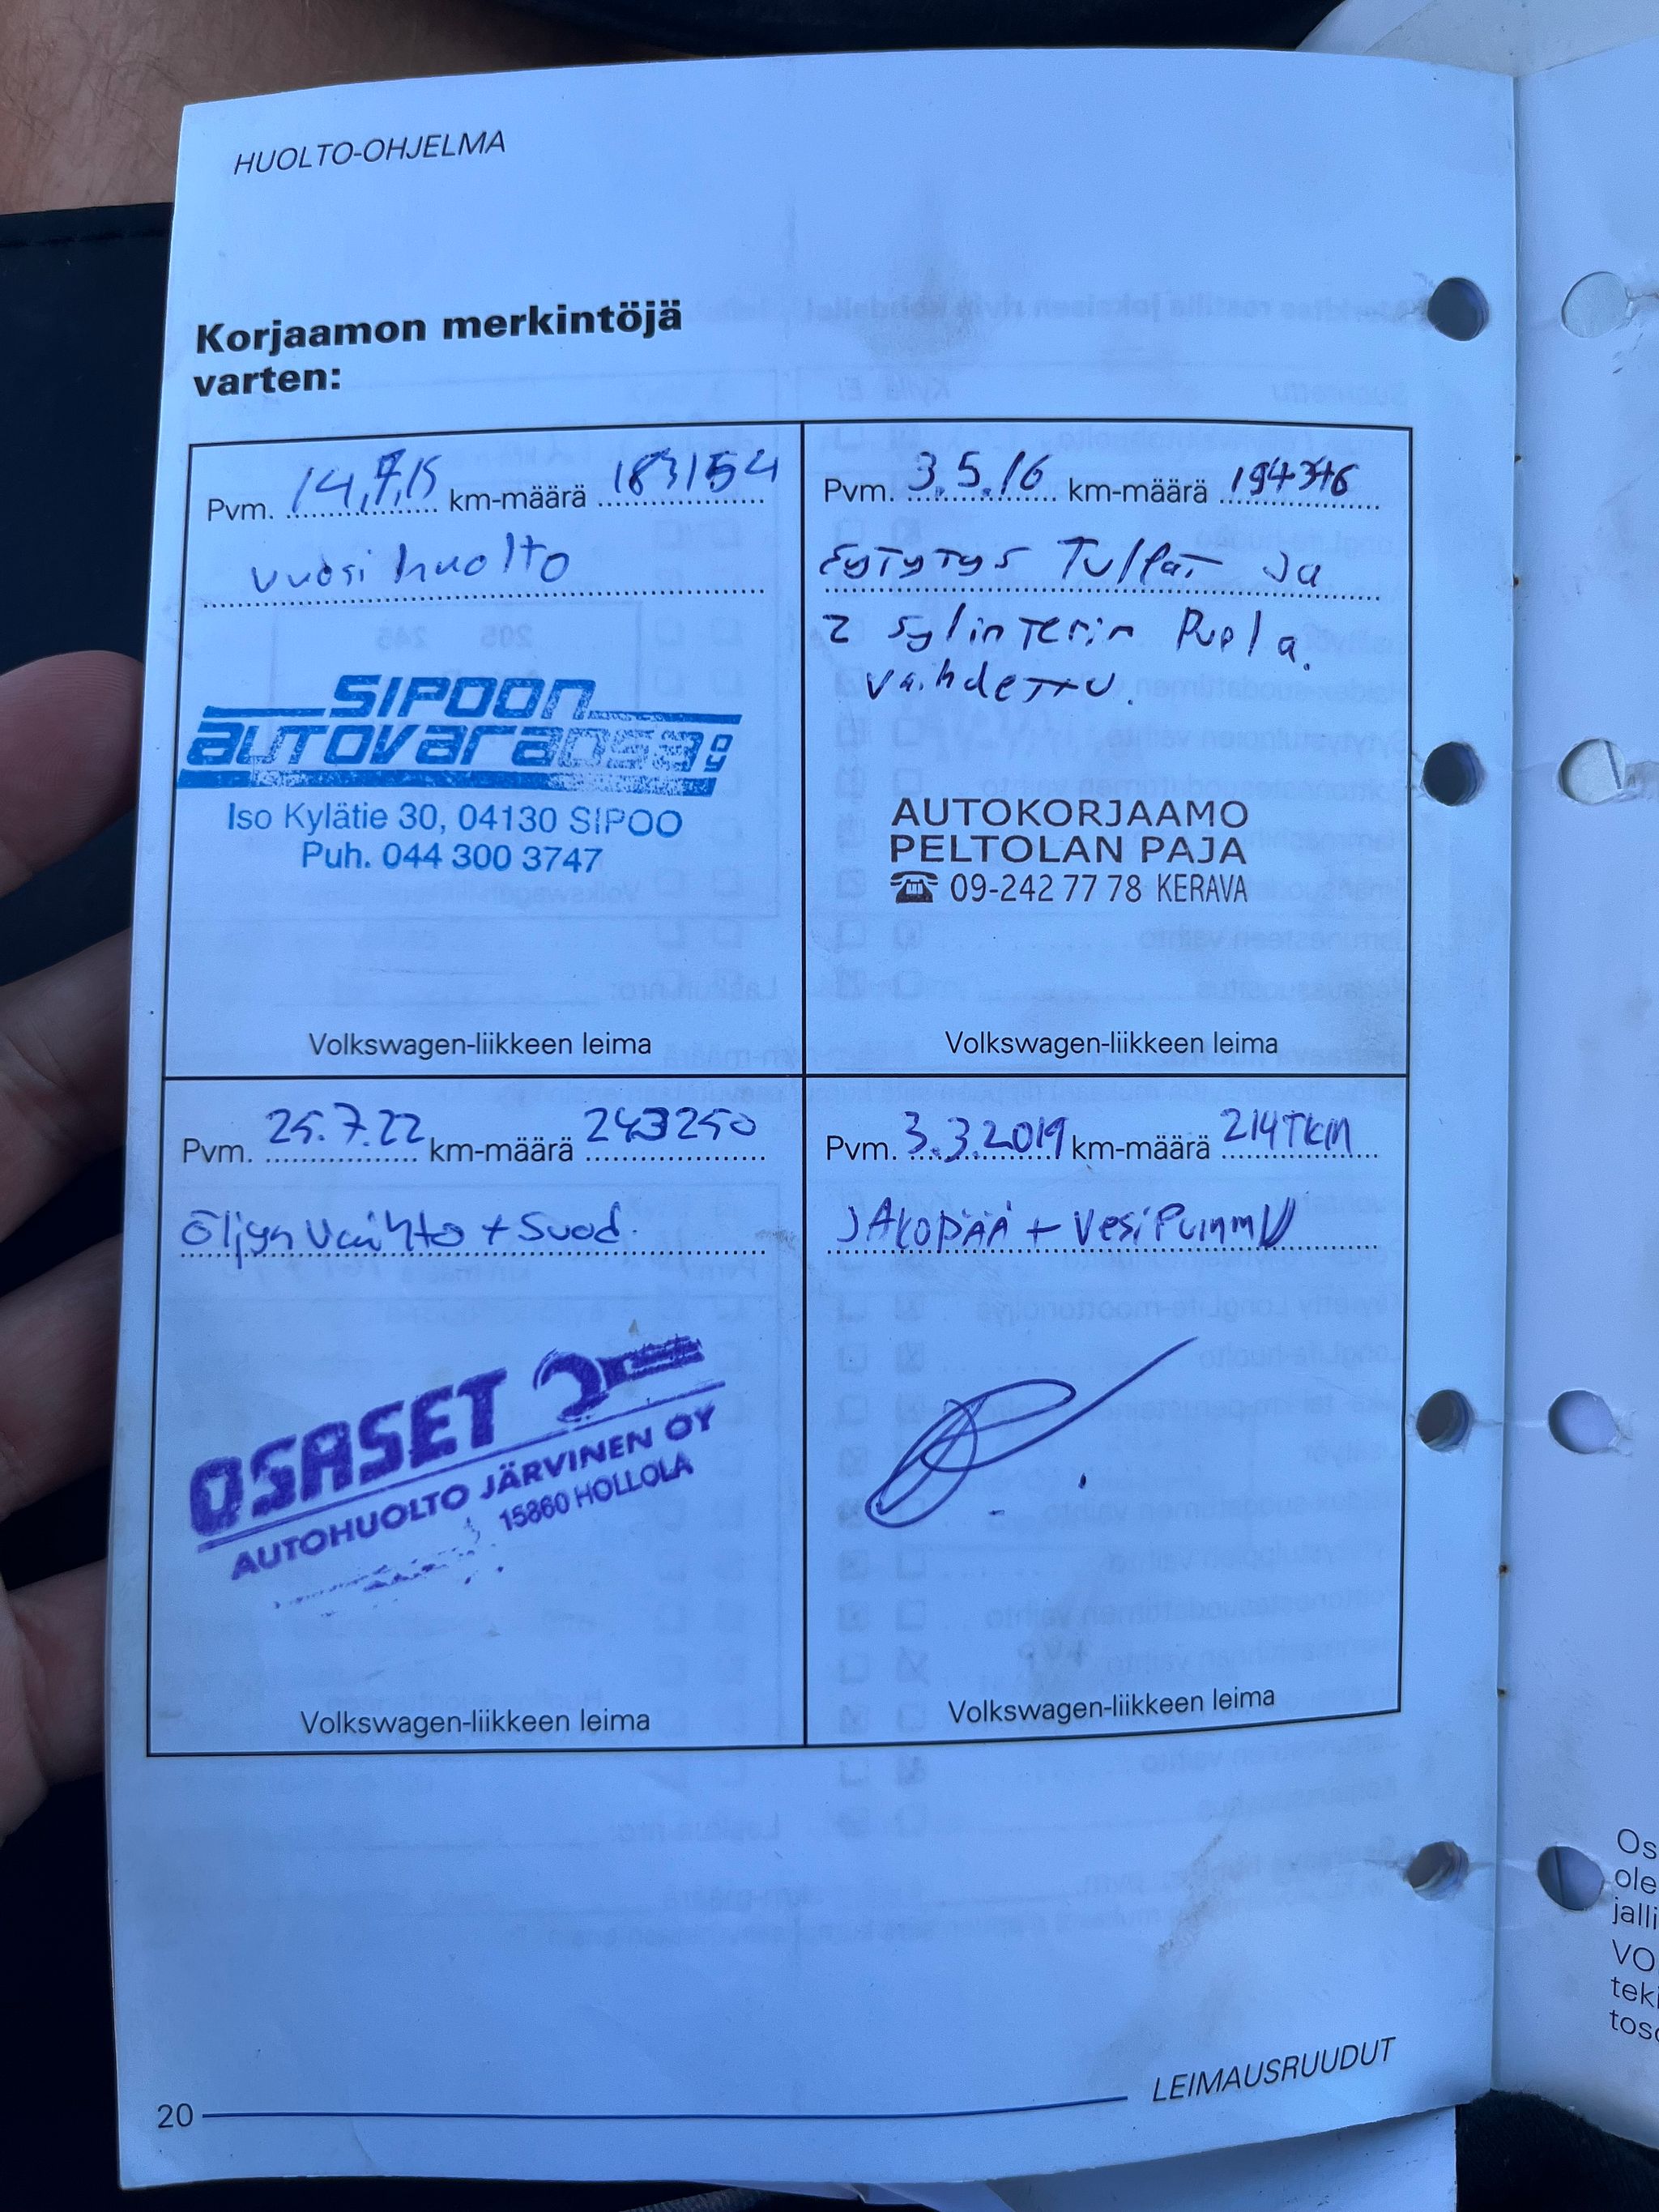 HUOLTO-OHJELMA
Korjaamon merkintöjä
varten:
Pvm. 14.7.15 km-määrä 183154
vuosihuolto
SIPOON
autovaraosa
Iso Kylätie 30, 04130 SIPOO
Puh. 044 300 3747
Volkswagen-liikkeen leima
Pvm. 3.5.16 km-määrä 194376
Sytytys Tulpat ja
2 sylinterin Puola
vaihdettu.
AUTOKORJAAMO
PELTOLAN PAJA
☎ 09-242 77 78 KERAVA
Volkswagen-liikkeen leima
Pvm. 25.7.22 km-määrä 243250
Öljyn vaihto + Suod.
OSASET
AUTOHUOLTO JÄRVINEN OY
15860 HOLLOLA
Volkswagen-liikkeen leima
Pvm. 3.3.2019 km-määrä 214TKM
JAKOPÄÄ + VesiPumppu
Volkswagen-liikkeen leima
20
LEIMAUSRUUDUT
Os
ole
jalli
VO
teki